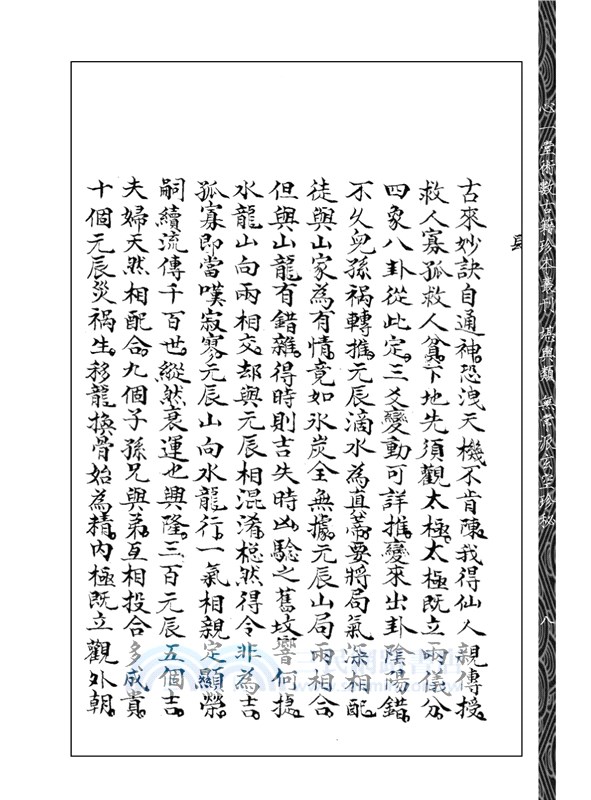 古來妙訣自通神。恐洩天機不肯陳。我得仙人親傳授。
救人寡孤救人貧。下地先須觀太極。太極既立兩儀分。
四象八卦從此定。三爻變動可詳推。變來出卦陰陽錯。
不久兒孫禍轉推。元辰滴水為直蕚。要將局氣深相配。
徒與山家為有情。竟如氷炭全無據。元辰山局兩相合。
但與山龍有錯雜。得時則吉失時凶。驗之舊墳響何捷。
水龍山向兩相交。却與元辰相混淆。縱然得令非為吉。
孤寡即當嘆寂寥。元辰山向水龍行。一氣相親定顯榮。
嗣續流傳千百世。縱然衰運也興隆。三百元辰五個吉。
夫婦天然相配合。九個子孫兄與弟。互相投合多成貴。
十個元辰災禍生。移龍換骨始為精。內極既立觀外朝。
心一堂術數古籍珍本叢刊 堪輿類 無常派玄空珍秘
八
三民網路書店